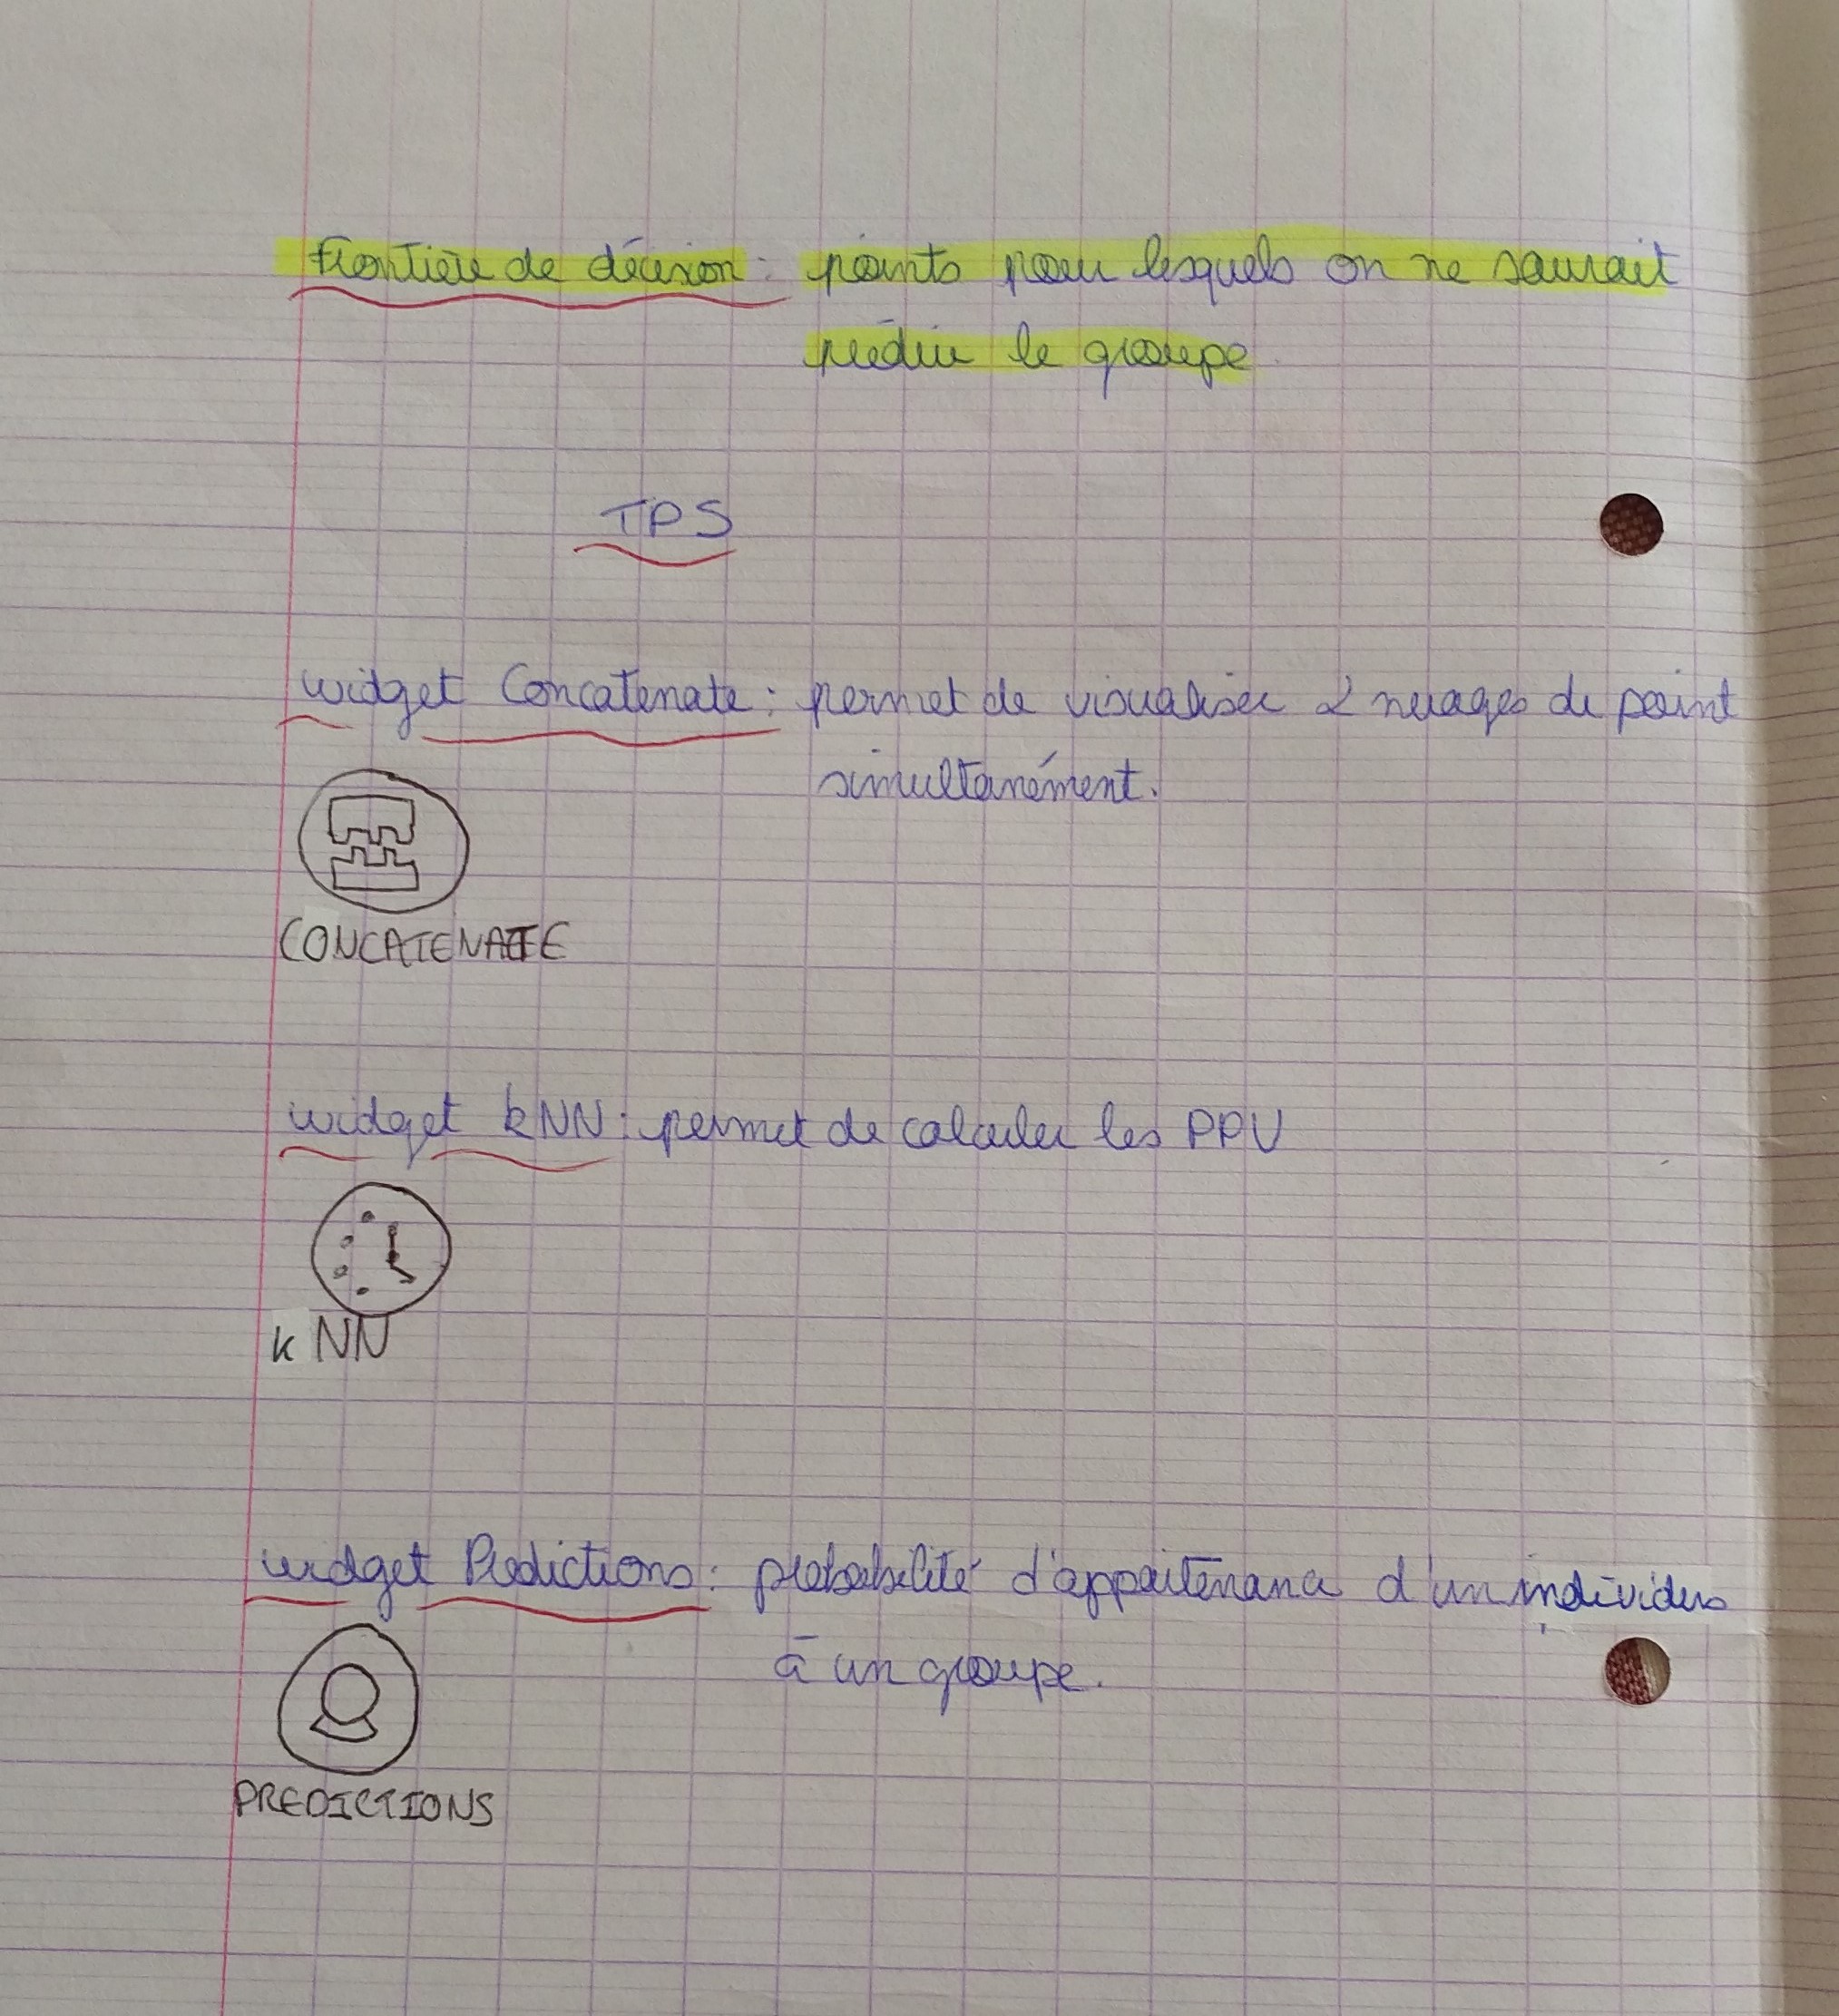 Frontière de décision : points pour lesquels on ne saurait
prédire le groupe.
TPS
widget Concatenate : permet de visualiser 2 nuages de point
simultanément.
CONCATENATE
widget kNN : permet de calculer les PPV
k NN
widget Predictions : probabilité d'appartenance d'un individu
à un groupe.
PREDICTIONS